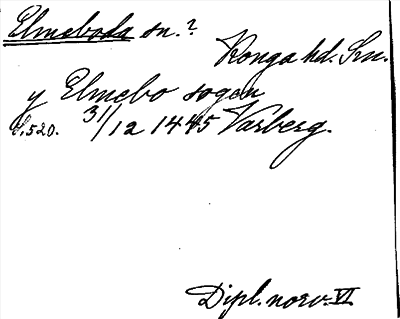 Elmeboda sn.?
Konga hd. Krn.
y Elmebo sogen
s. 520. 31/12 1445 Varberg.
Dipl. norv. VI